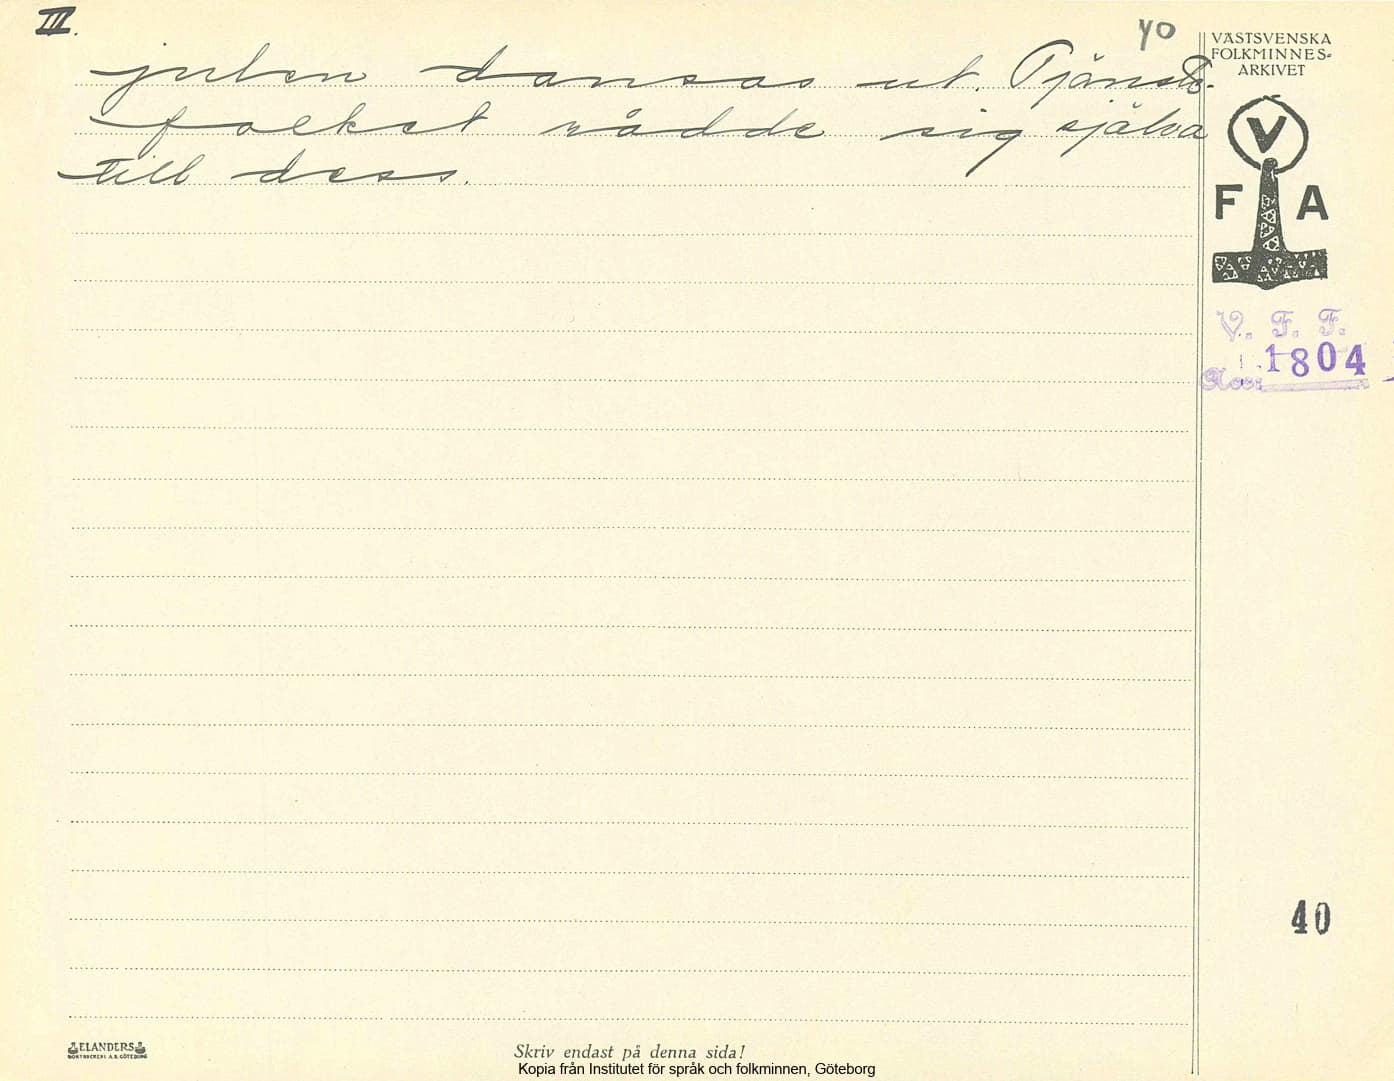 III.
40
VÄSTSVENSKA
FOLKMINNES-
ARKIVET
julen dansas ut. Tjänste-
folket rådde sig själva
till dess.
V
F A
V. F. F.
Acc: 1804
40
ELANDERS
BOKTRYCKERI A.B. GÖTEBORG
Skriv endast på denna sida!
Kopia från Institutet för språk och folkminnen, Göteborg